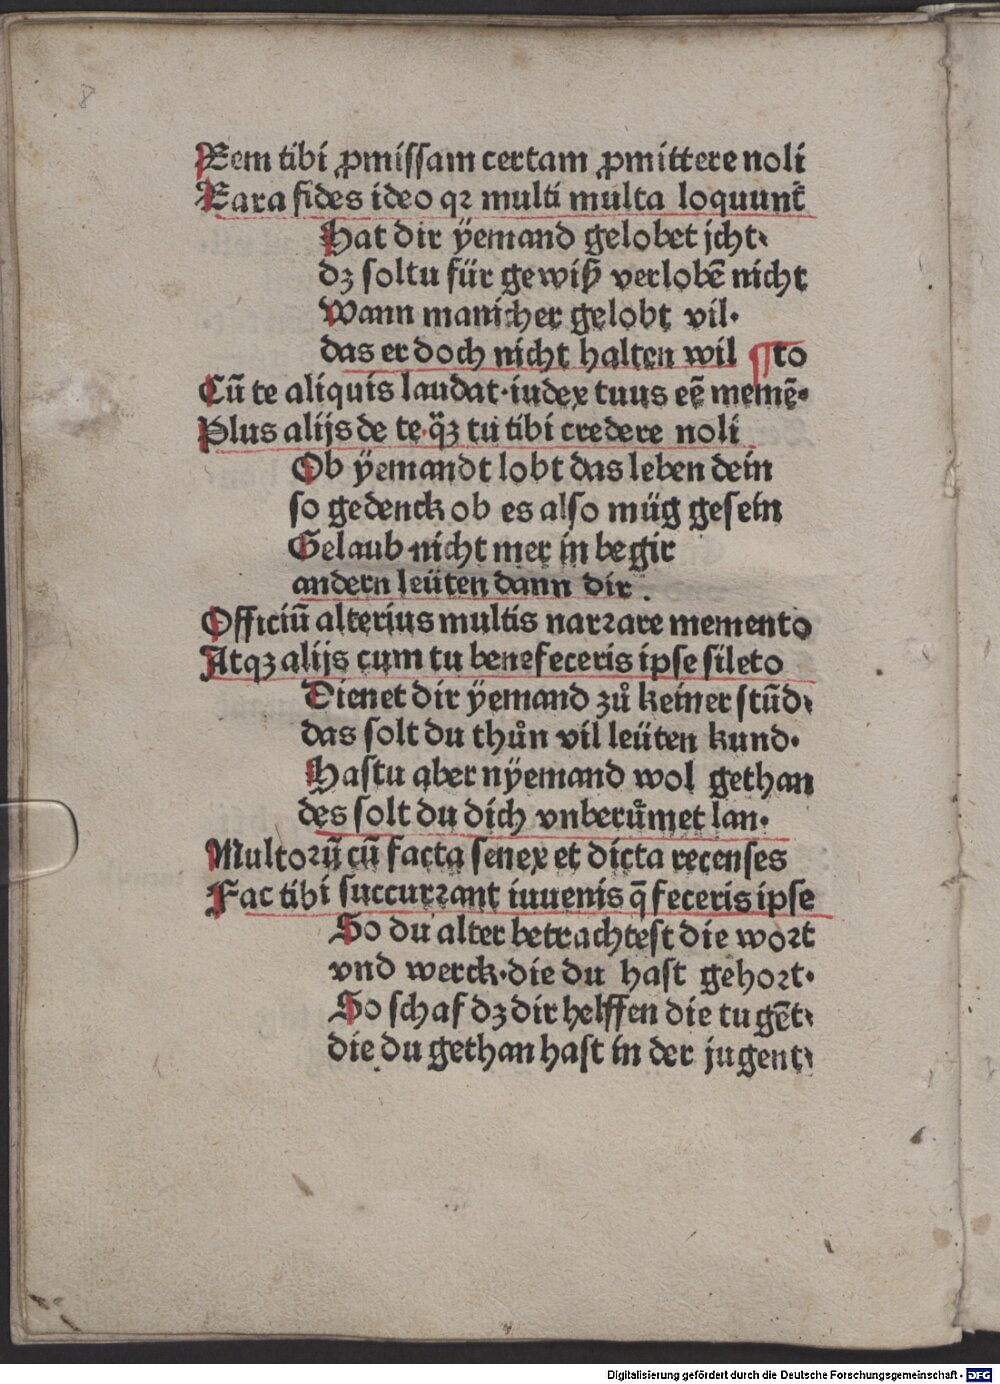 8
Rem tibi ꝓmissam certam ꝓmittere noli
Rara fides ideo qꝛ multi multa loquunt̃
Hat dir ÿemand gelobet jcht·
dꝫ soltu für gewiß verlobẽ nicht
Wann manicher gelobt vil·
das er doch nicht halten wil ¶to
Cũ te aliquis laudat·iudex tuus eẽ memẽ·
Plus alijs de te·q̃ꝫ tu tibi credere noli
Ob ÿemandt lobt das leben dein
so gedenck ob es also müg gesein
Gelaub nicht mer in begir
andern leüten dann dir.
Officiũ alterius multis narꝛare memento
Atqꝫ alijs cum tu benefeceris ipse sileto
Dienet dir ÿemand zů keiner stũd·
das solt du thůn vil leüten kund·
Hastu aber nÿemand wol gethan
des solt du dich vnberůmet lan·
Multoꝛũ cũ facta senex et dicta recenses
Fac tibi succurꝛant iuuenis q̃ feceris ipse
So du alter betrachtest die woꝛt
vnd werck·die du hast gehoꝛt·
So schaf dꝫ dir helffen die tugẽt·
die du gethan hast in der jugent·
Digitalisierung gefördert durch die Deutsche Forschungsgemeinschaft - DFG